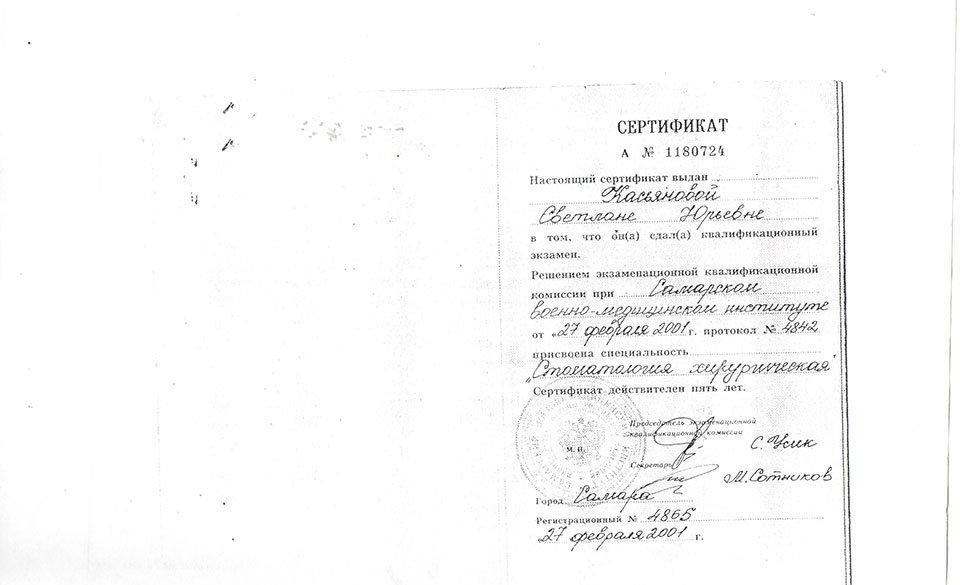 СЕРТИФИКАТ
А № 1180724
Настоящий сертификат выдан
Касьяновой
Светлане Юрьевне
в том, что он(а) сдал(а) квалификационный
экзамен.
Решением экзаменационной квалификационной
комиссии при Самарском
военно-медицинском институте
от «27 февраля 2001 г. протокол № 4842
присвоена специальность
"Стоматология хирургическая"
Сертификат действителен пять лет.
Председатель экзаменационной
квалификационной комиссии
С. Усик
М. П.
Секретарь
М. Сотников
Город Самара
Регистрационный № 4865
«27 февраля 2001 г.